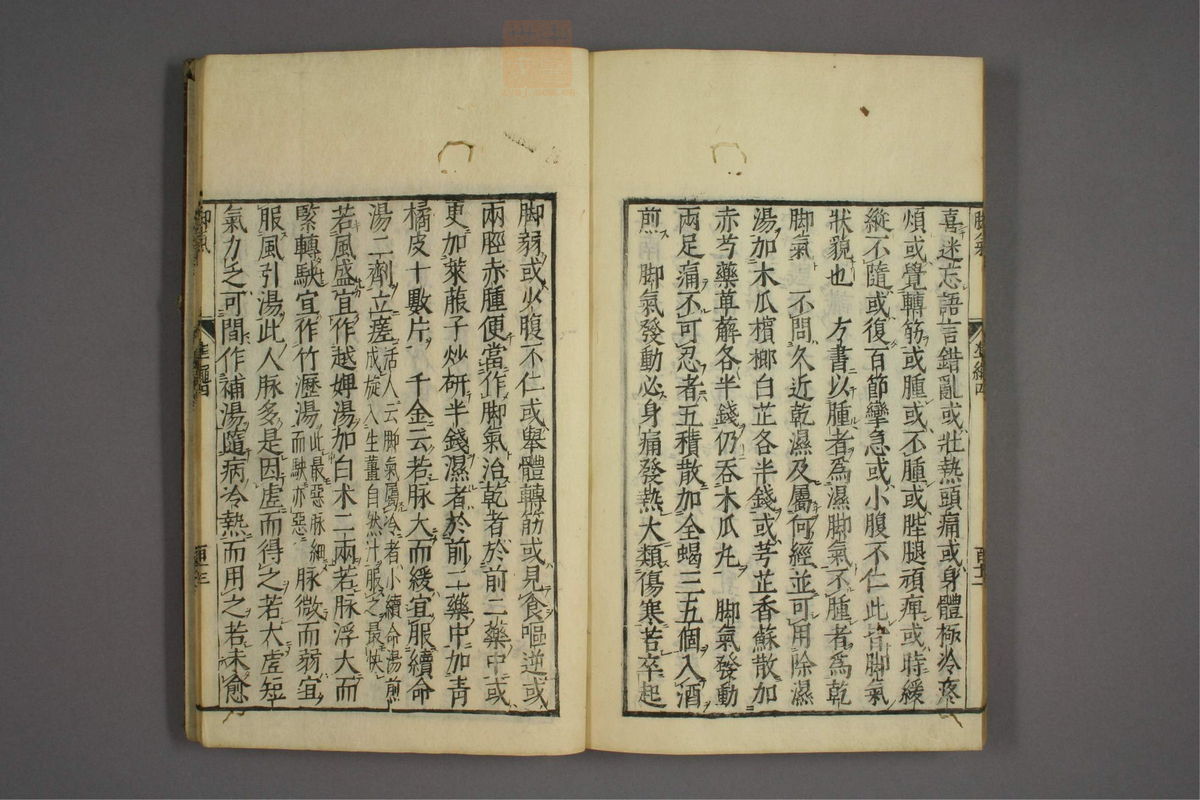 喜迷忘語言錯亂或壯熱頭痛或身體極冷疼
煩或覺轉筋或腫或不腫或䏶腿頑痺或時緩
縱不隨或復百節攣急或小腹不仁此皆脚氣
狀貌也　方書以腫者爲濕脚氣不腫者爲乾
脚氣　不問久近乾濕及屬何經並可用除濕
湯加木瓜檳榔白芷各半錢或芎芷香蘇散加
赤芍藥萆薢各半錢仍吞木瓜丸　脚氣發動
兩足痛不可忍者五積散加全蝎三五個入酒
煎　脚氣發動必身痛發熱大類傷寒若卒起
脚弱或少腹不仁或舉體轉筋或見食嘔逆或
兩脛赤腫便當作脚氣治乾者於前二藥中或
更加萊菔子炒研半錢濕者於前二藥中加青
橘皮十數片　千金云若脉大而緩宜服續命
湯二劑立瘥活人云脚氣屬冷者小續命湯煎成旋入生薑自然汁服之最快
若風盛宜作越婢湯加白朮二兩若脉浮大而
緊轉駃宜作竹瀝湯此最惡脉細而駃亦惡脉微而弱宜
服風引湯此人脉多是因虛而得之若大虛短
氣力乏可間作補湯隨病冷熱而用之若未愈